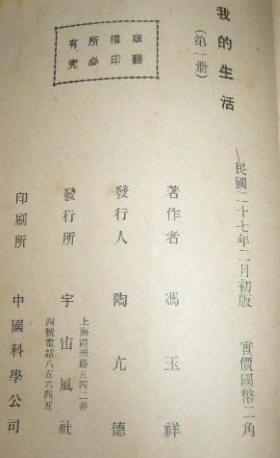 我的生活
(第一册)
版權所有
翻印必究
民國二十七年二月初版 實價國幣二角
著作者 馮玉祥
發行人 陶亢德
發行所 宇宙風社
上海霞飛路五四二弄
四號電話八五六四五
印刷所 中國科學公司